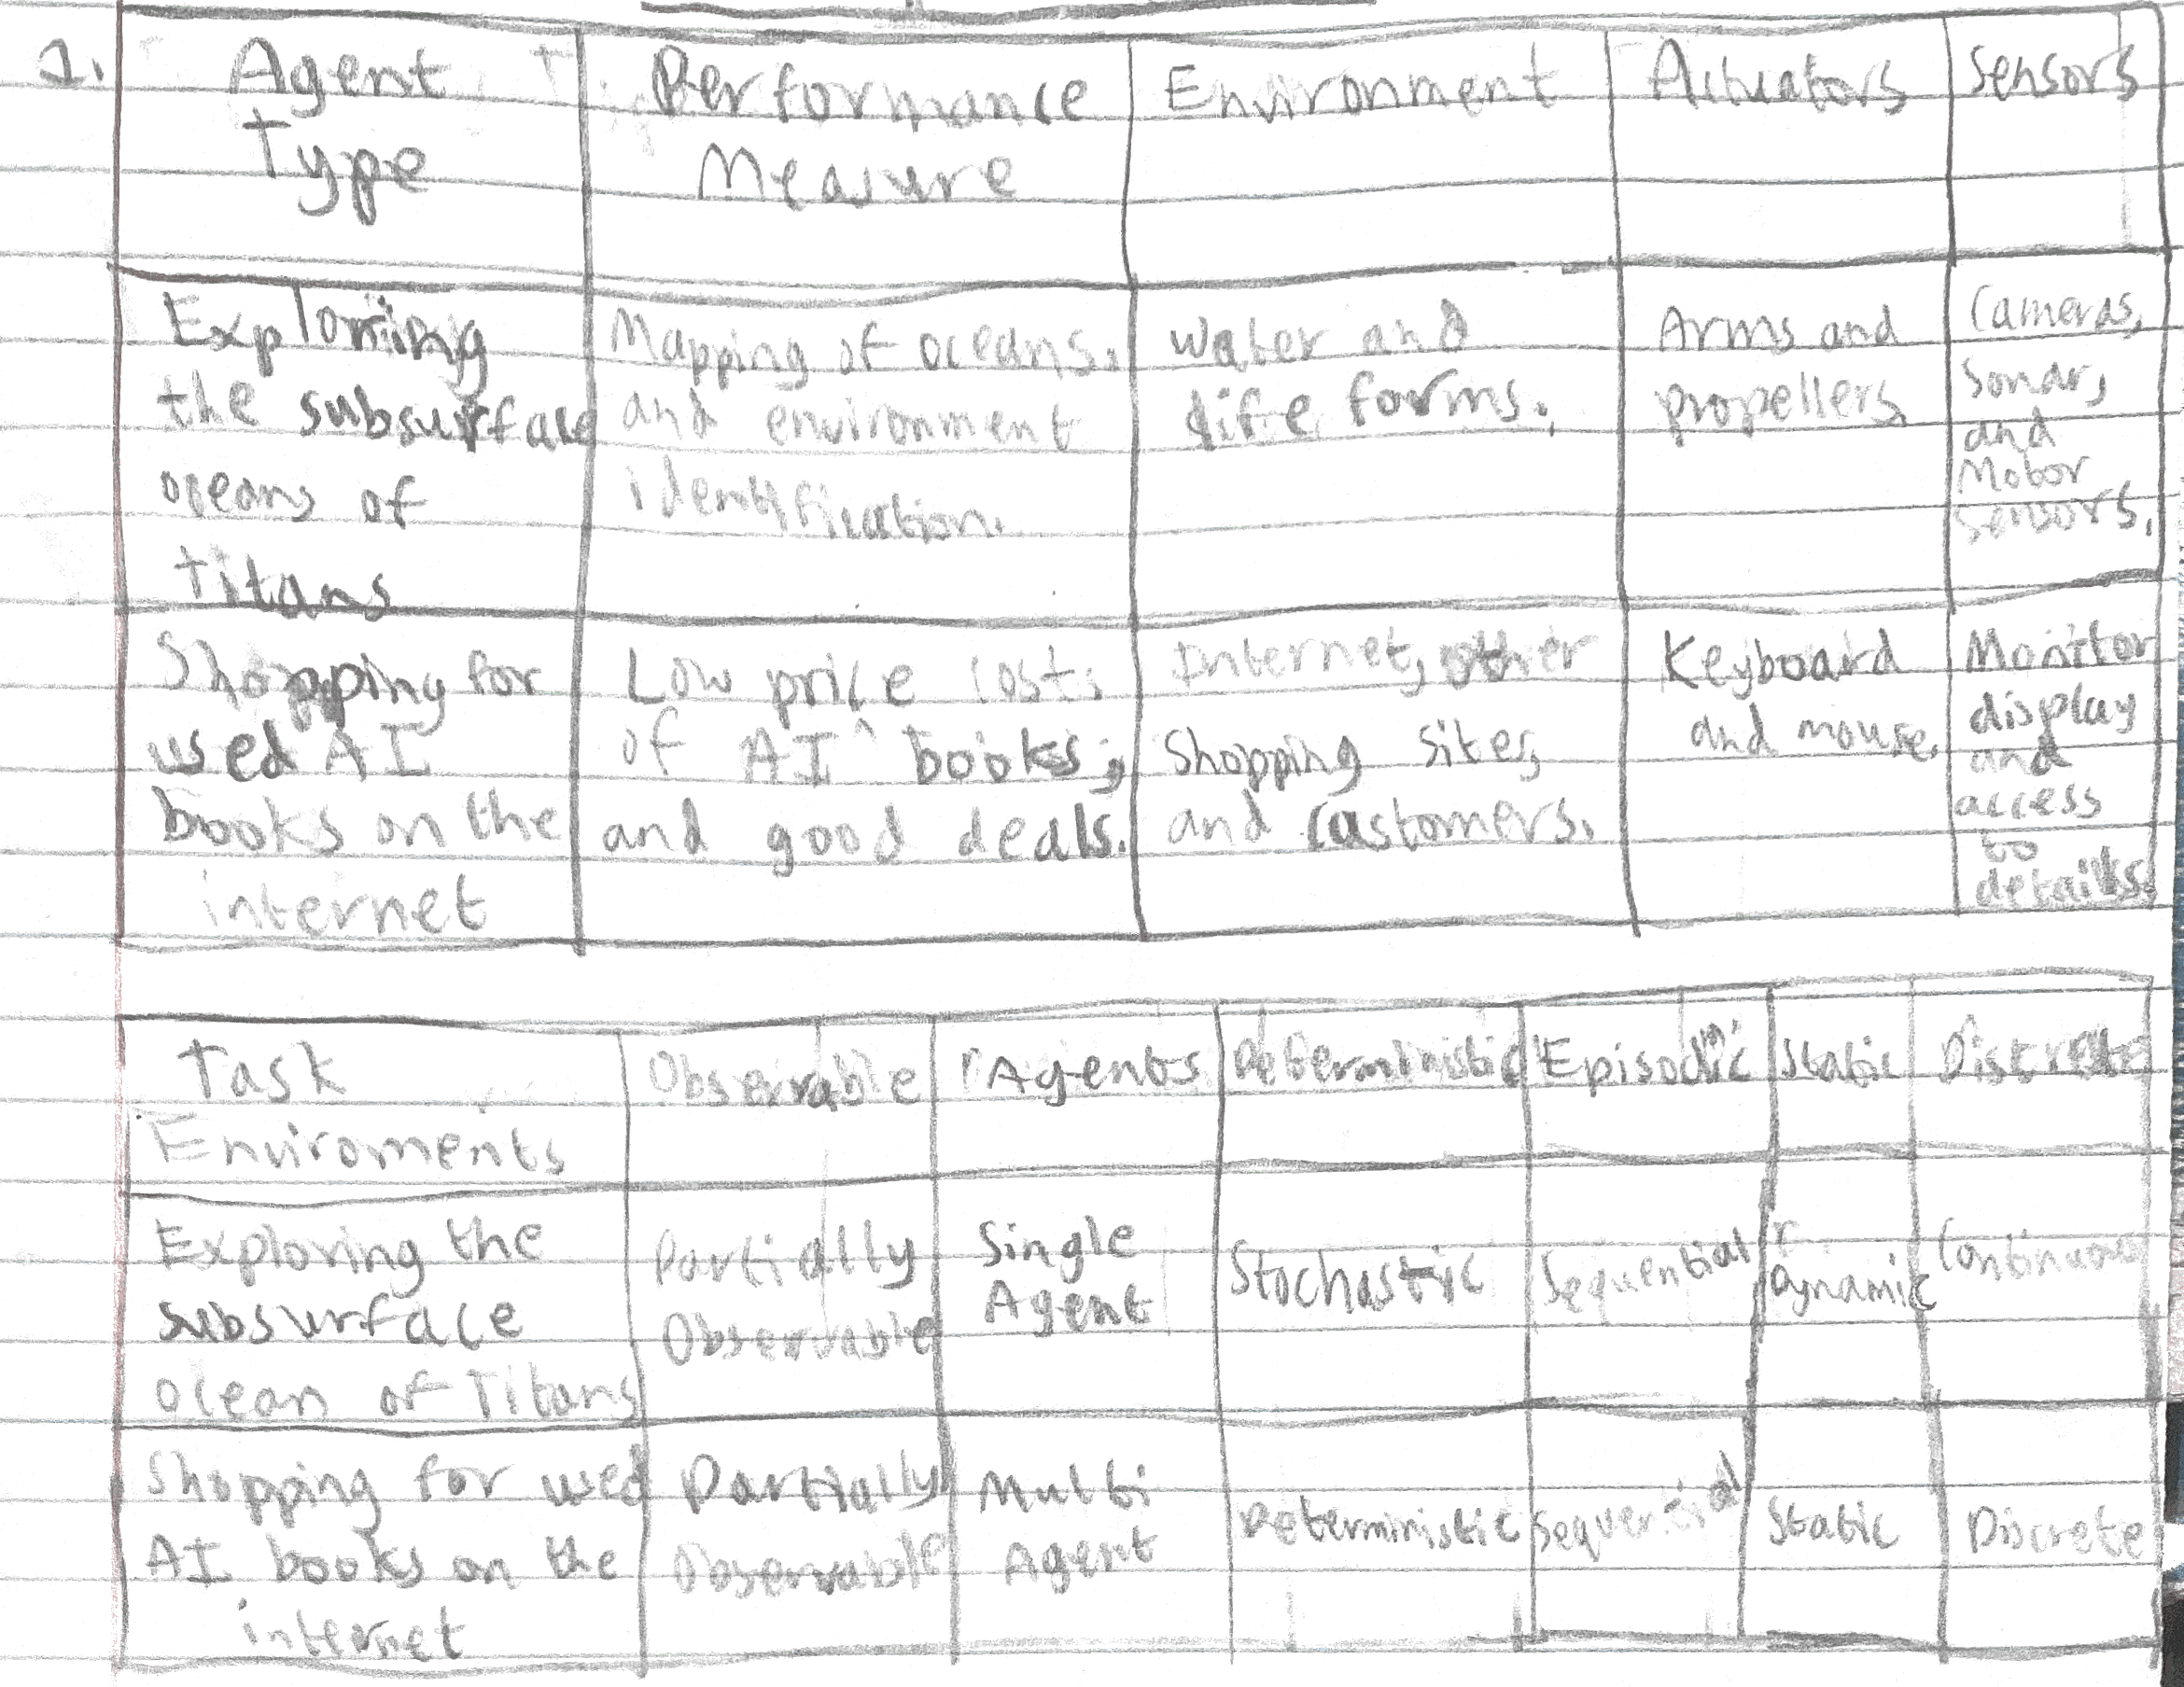 1.
Agent Type
Performance Measure
Environment
Actuators
Sensors
Exploring
the subsurface
oceans of
Titans
Mapping of oceans.
and environment
identification.
water and
life forms.
Arms and
propellers.
Cameras,
Sonar,
and
Motor
sensors.
Shopping for
used AI
books on the
internet
Low price cost.
of AI books,
and good deals.
Internet, other
Shopping sites,
and customers.
Keyboard
and mouse.
Monitor
display
and
access
to
details.
Task
Enviroments
Observable
Agents
Deterministic
Episodic
Static
Discrete
Exploring the
subsurface
ocean of Titans
Partially
Observable
Single
Agent
Stochastic
Sequential
Dynamic
Continuous
Shopping for used
AI books on the
internet
Partially
Observable
Multi
Agent
Deterministic
Sequential
Static
Discrete